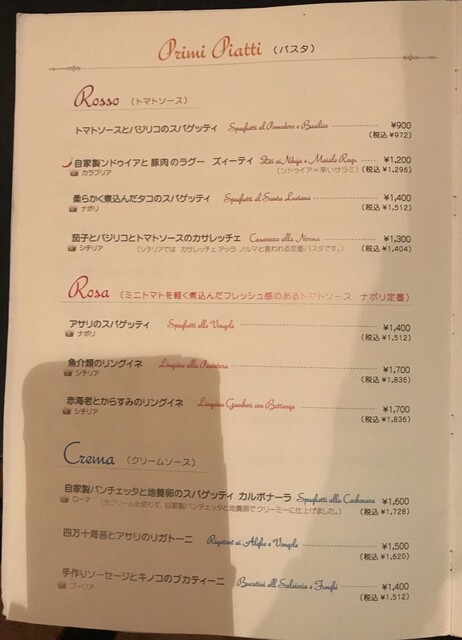 Primi Piatti (パスタ)
Rosso (トマトソース)
トマトソースとバジリコのスパゲッティ Spaghetti al Pomodoro e Basilico ¥900
(税込 ¥972)
自家製ンドゥイアと豚肉のラグー ズィーティ Ziti ai Nduja e Maiale Ragu ¥1,200
カラブリア (ンドゥイア=辛いサラミ) (税込 ¥1,296)
柔らかく煮込んだタコのスパゲッティ Spaghetti al Santa Luciana ¥1,400
ナポリ (税込 ¥1,512)
茄子とバジリコとトマトソースのカサレッチェ Casarecce alla Norma ¥1,300
シチリア (シチリアでは カサレッチェ アッラ ノルマと言われる定番パスタです。) (税込 ¥1,404)
Rosa (ミニトマトを軽く煮込んだフレッシュ感のあるトマトソース ナポリ定番)
アサリのスパゲッティ Spaghetti alle Vongole ¥1,400
ナポリ (税込 ¥1,512)
魚介類のリングイネ Linguine alla Pescatora ¥1,700
シチリア (税込 ¥1,836)
赤海老とからすみのリングイネ Linguine Gamberi con Bottarga ¥1,700
シチリア (税込 ¥1,836)
Crema (クリームソース)
自家製パンチェッタと地養卵のスパゲッティ カルボナーラ Spaghetti alla Carbonara ¥1,600
ローマ (生クリームを使わず、自家製パンチェッタと地養卵でクリーミーに仕上げました。) (税込 ¥1,728)
四万十海苔とアサリのリガトーニ Rigatoni ai Alghe e Vongole ¥1,500
(税込 ¥1,620)
手作りソーセージとキノコのブカティーニ Bucatini all Salsiccia e Funghi ¥1,400
プーリア (税込 ¥1,512)